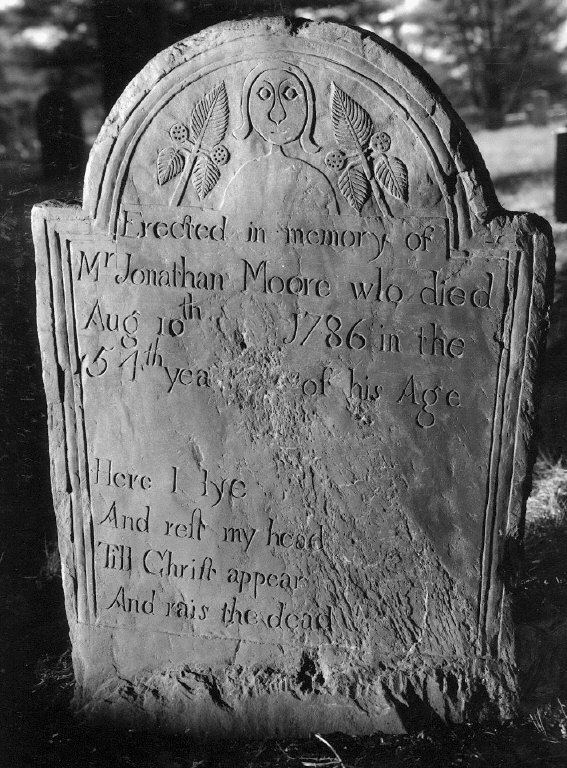 Erected in memory of
Mr Jonathan Moore who died
Aug 10th 1786 in the
57th yea of his Age
Here I lye
And reſt my head
Till Chriſt appear
And rais the dead